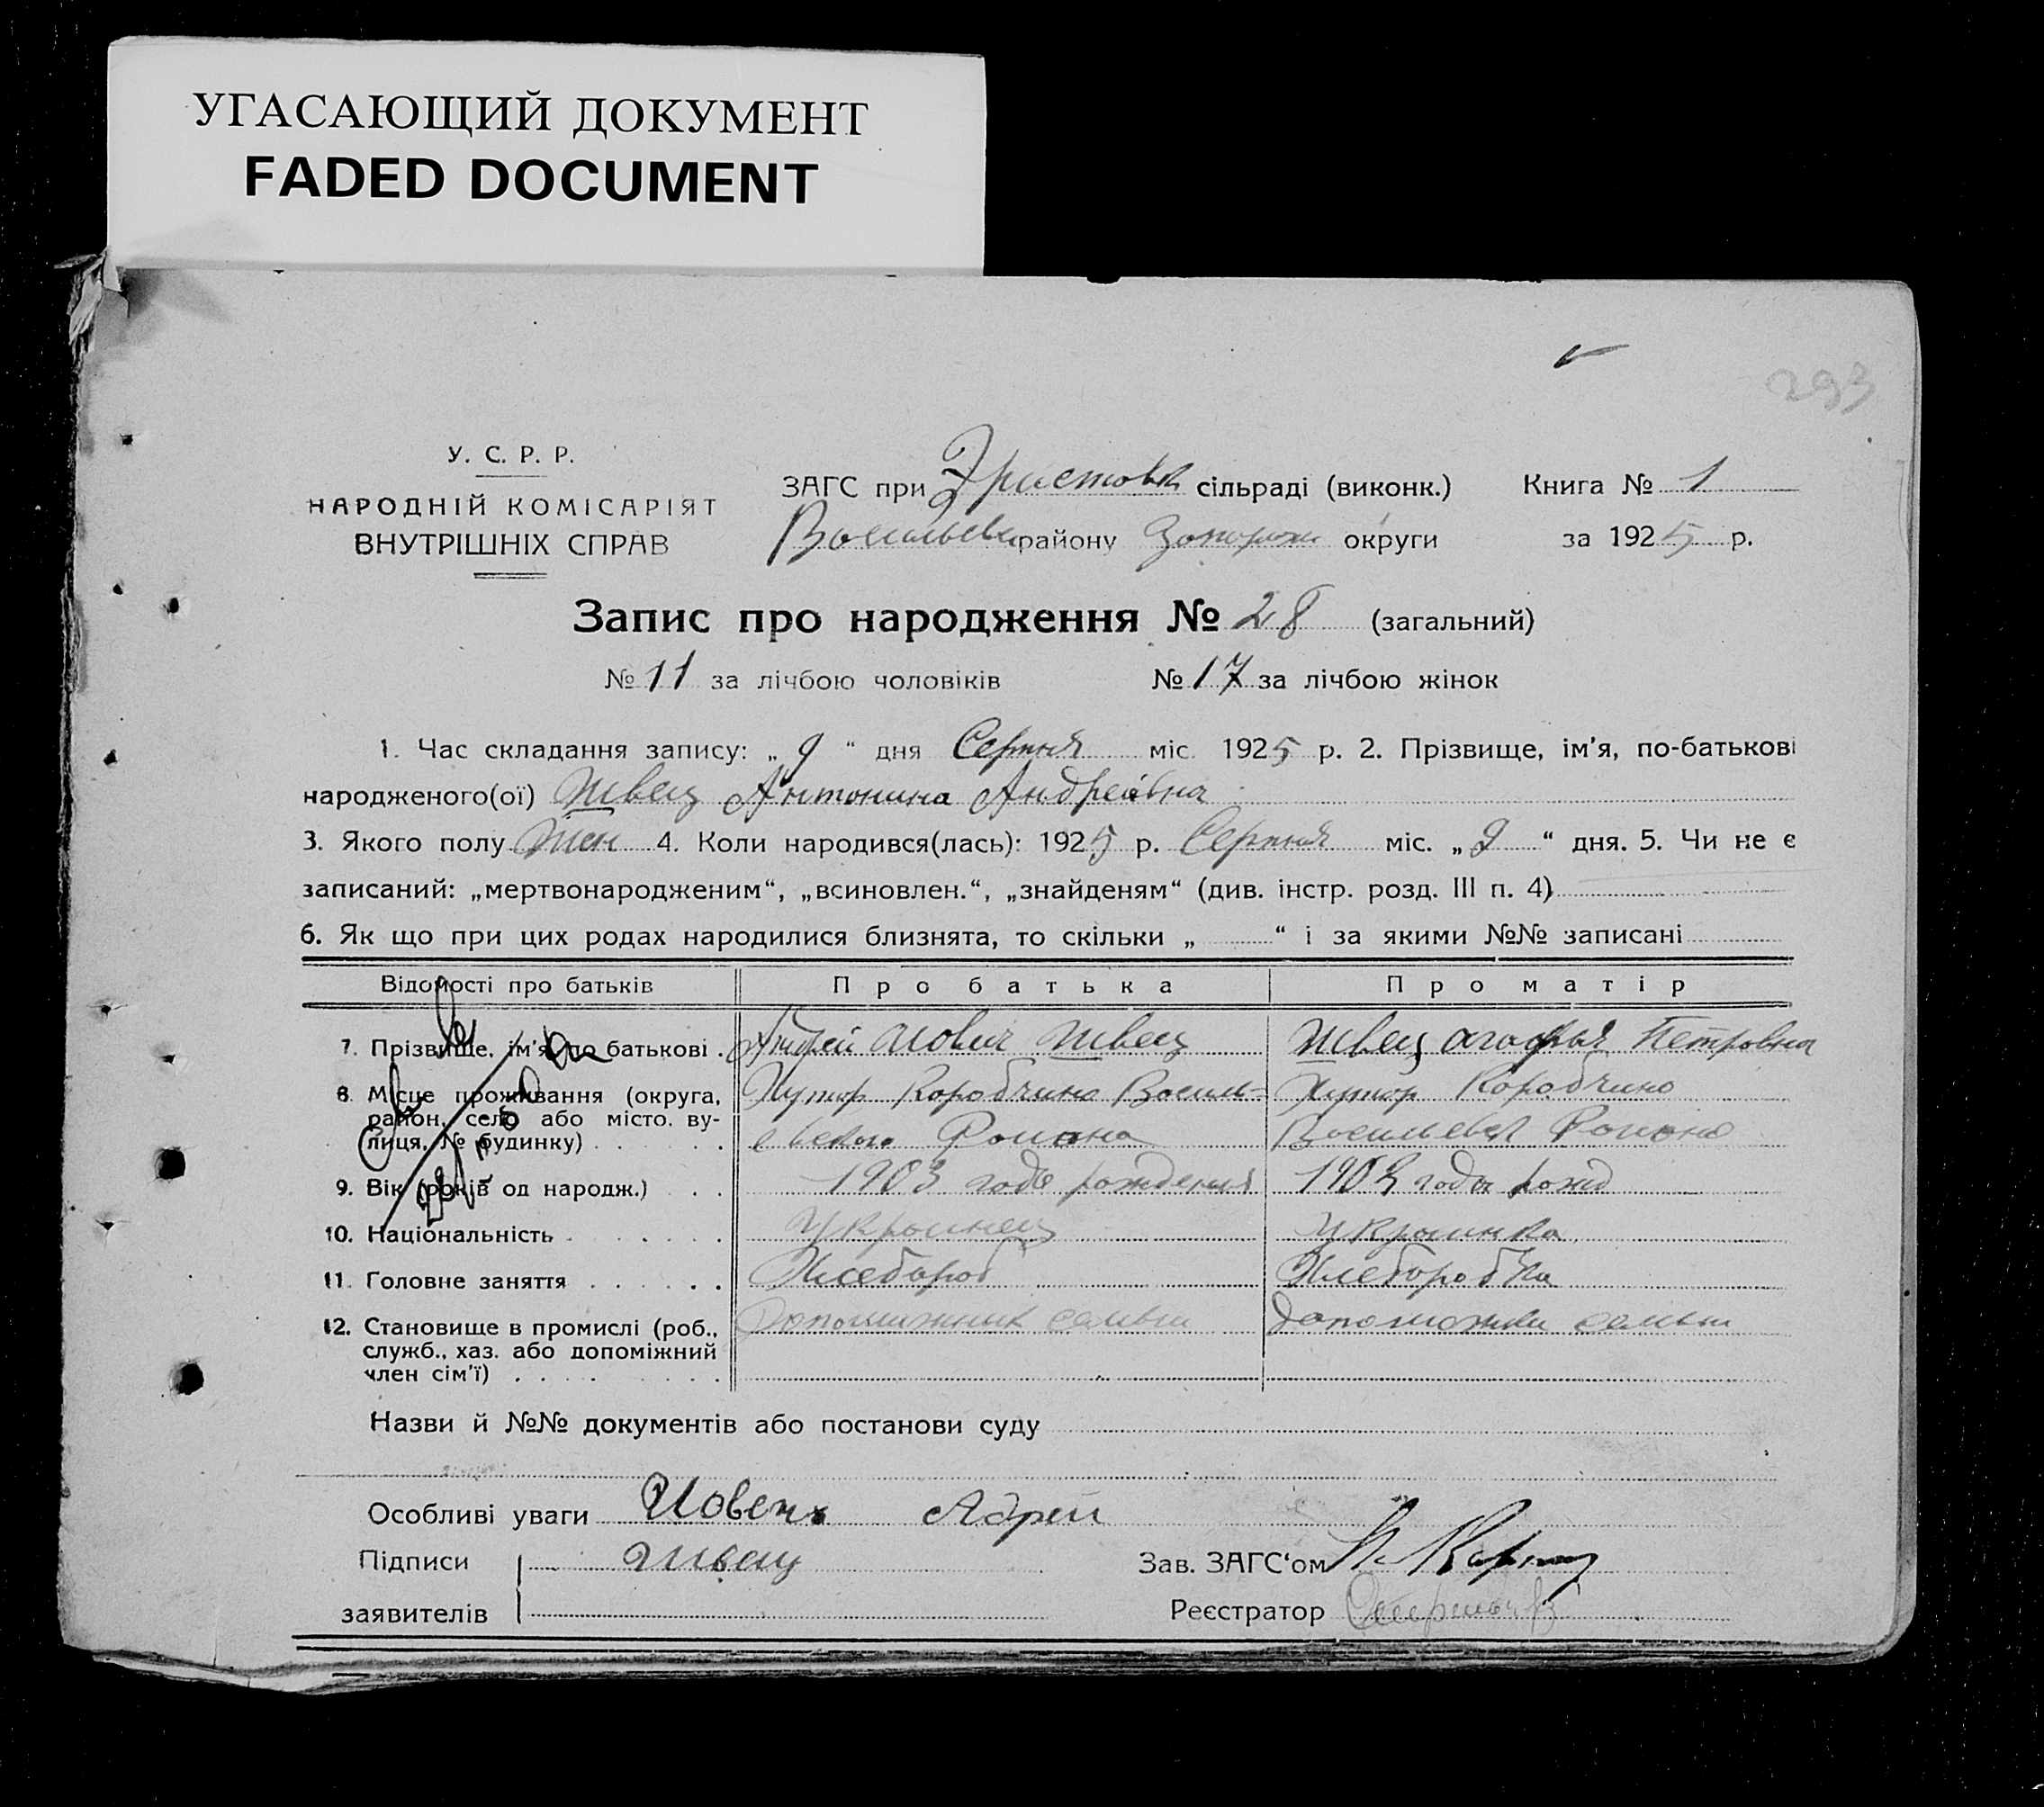 УГАСАЮЩИЙ ДОКУМЕНТ
FADED DOCUMENT
293
У. С. Р. Р.
НАРОДНІЙ КОМІСАРІЯТ
ВНУТРІШНІХ СПРАВ
ЗАГС при Эристовк сільраді (виконк.) Книга № 1
Васильев району Запорож округи за 1925 р.
Запис про народження № 28 (загальний)
№ 11 за лічбою чоловіків № 17 за лічбою жінок
1. Час складання запису: „ 9 “ дня Серпня міс. 1925 р. 2. Прізвище, ім'я, по-батькові
народженого(ої) Швец Антонина Андреівна
3. Якого полу жен 4. Коли народився(лась): 1925 р. Серпня міс. „ 2 “ дня. 5. Чи не є
записаний: „мертвонародженим“, „всиновлен.“, „знайденям“ (див. інстр. розд. III п. 4)
6. Як що при цих родах народилися близнята, то скільки „ “ і за якими №№ записані
Відомості про батьків Про батька Про матір
7. Прізвище, ім'я, по батькові . Андрей Иович Швец Швец Агафья Петровна
8. Місце проживання (округа, Хутор Коробчино Василь- Хутор Коробчино
район, село або місто, ву-
лиця, № будинку) . . . евского Района Васильевск Района
9. Вік (років од народж.) . . 1903 года рождения 1903 года рожд
10. Національність . . . . . . . Украинец Украинка
11. Головне заняття . . . . . . Хлебороб Хлеборобка
12. Становище в промислі (роб., Допомижник семьи Допоможни семьи
служб., хаз. або допоміжний
член сім'ї) . . . . . . . .
Назви й №№ документів або постанови суду
Особливі уваги Иовен Адрей
Підписи Швец Зав. ЗАГС'ом
заявителів Реєстратор